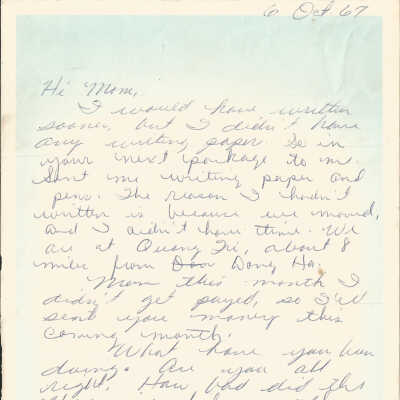 6 Oct 67
Hi Mom,
I would have written
sooner, but I didn't have
any writing paper. So in
your next package to me.
Sent me writing paper and
pens. The reason I hadn't
written is because we moved,
and I didn't have time. We
are at Quang Tri, about 8
miles from Dong Ha.
Mom this month I
didn't get payed, so I'll
sent you money this
coming month.
What have you been
doing. Are you all
right. How bad did the